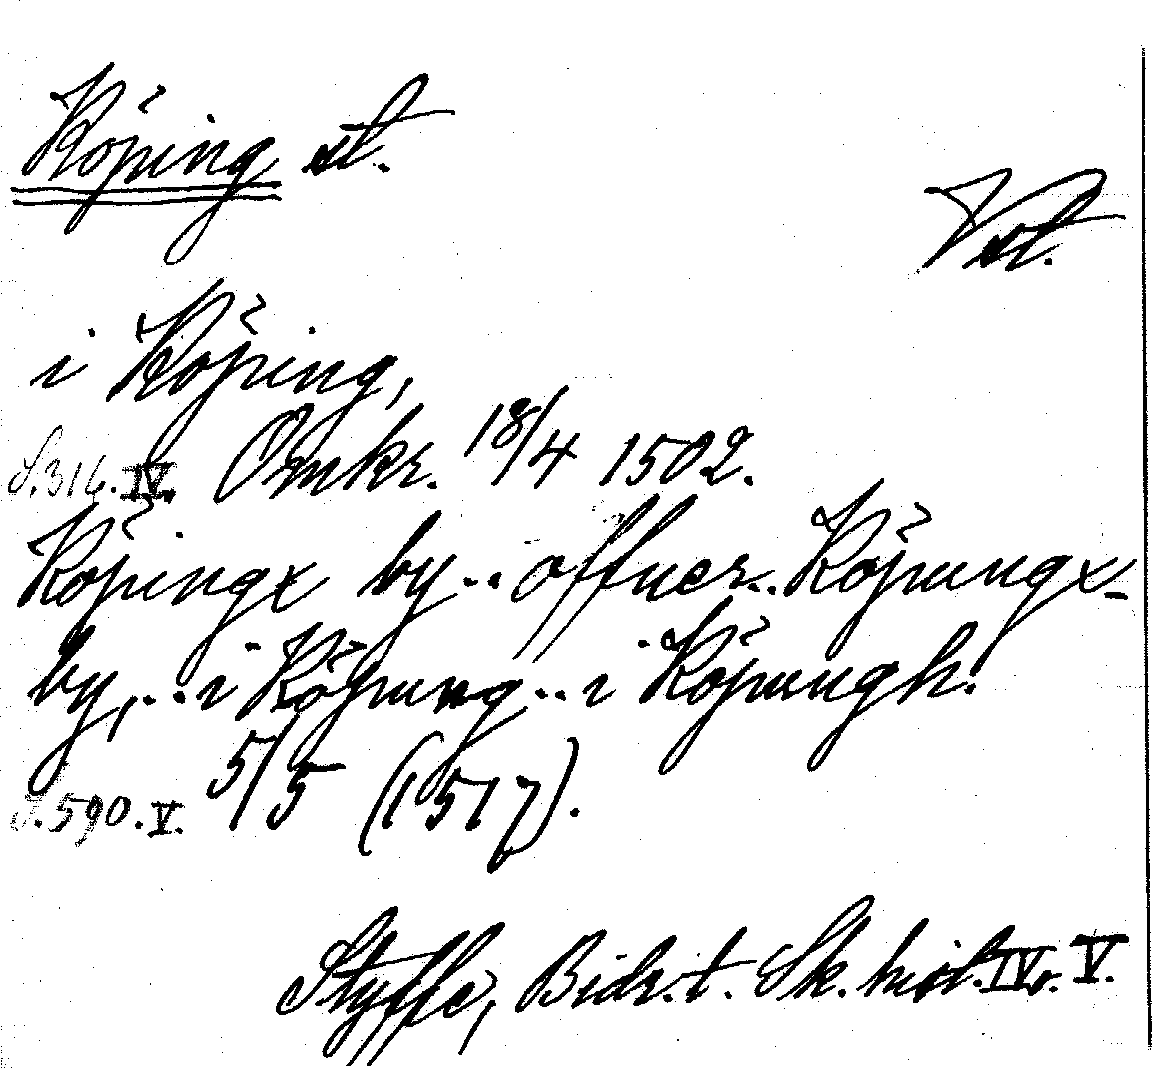 Köping st.
Vst.
i Köping,
S. 316. IV. Omkr. 18/4 1502.
Köpingx by .. offuer .. Köpungx-
by, .. i Köpung .. i Köpungh.
S. 590. V. 5/5 (1517).
Styffe, Bidr. t. Sk. hist. IV o. V.